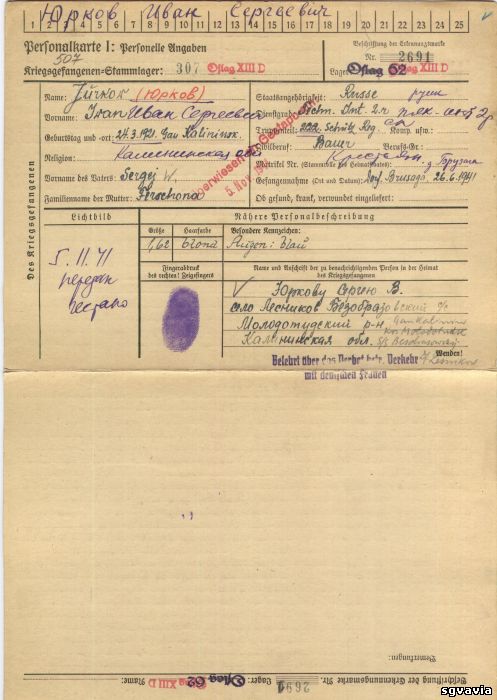 Юрков Иван Сергеевич
1 2 3 4 5 6 7 8 9 10 11 12 13 14 15 16 17 18 19 20 21 22 23 24 25
Personalkarte I: Personelle Angaben
507
Kriegsgefangenen-Stammlager: 307 Oflag XIII D
Beschriftung der Erkennungsmarke
Nr. 2691
Lager: Oflag 62 Oflag XIII D
Des Kriegsgefangenen
Name: Jurkow (Юрков)
Vorname: Iwan Иван Сергеевич
Geburtstag und -ort: 24.3.1921. Gau Kalininsk.
Калининская обл
Religion:
Vorname des Vaters: Sergej W.
Familienname der Mutter:
Überwiesen an Gestapo am
5. Nov. 1941
Staatsangehörigkeit: Russe русск
Dienstgrad: Techn. Int. 2 r.
Truppenteil: 222. Schütz Reg. Komp. usw.:
Zivilberuf: Bauer Berufs-Gr.:
Крестьян
Matrikel Nr. (Stammrolle des Heimatstaates):
Gefangennahme (Ort und Datum): Dorf 26.6.1941
Ob gesund, krank, verwundet eingeliefert:
Lichtbild
5.11.41
передан
гестапо
Nähere Personalbeschreibung
Größe Haarfarbe Besondere Kennzeichen:
1,62 blond Augen: blau
Fingerabdruck
des rechten! Zeigefingers
Name und Anschrift der zu benachrichtigenden Person in der Heimat
des Kriegsgefangenen
Юркову Сергею В.
село Лесников Безобразовский с/с
Молодотудский р-н
Калининская обл.
Wenden!
Belehrt über das Verbot betr. Verkehr
mit deutschen Frauen
Bemerkungen:
Beschriftung der Erkennungsmarke Nr. 2691 Lager: Oflag 62 Oflag XIII D Name:
sgvavia